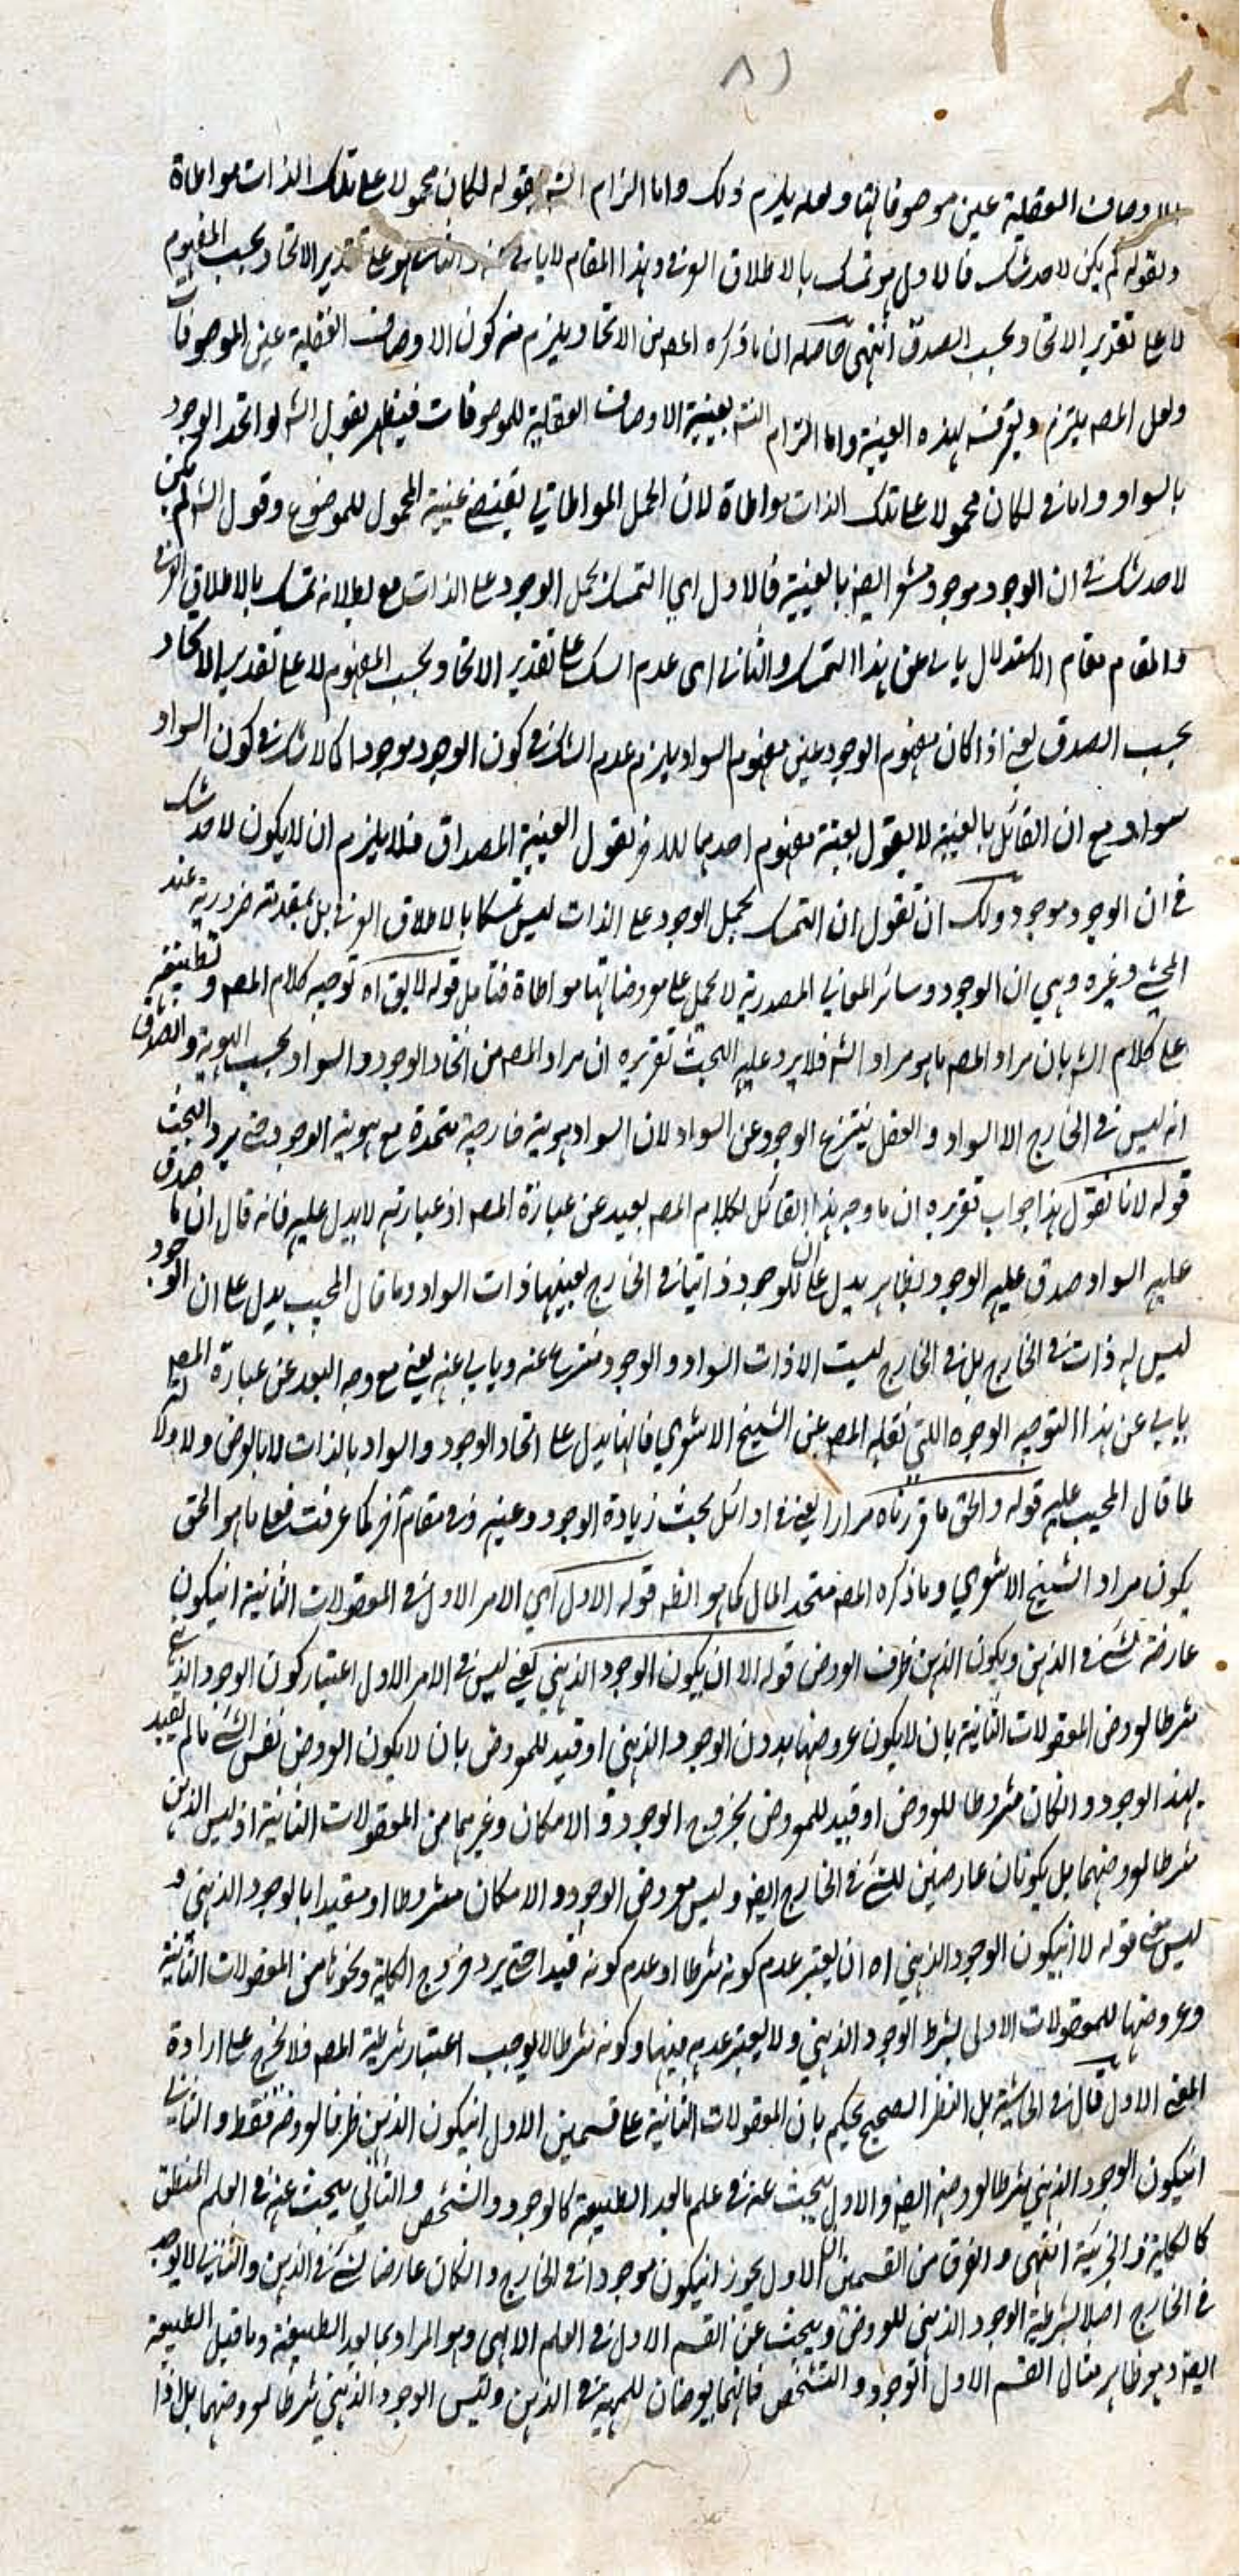 ٨١
الاوصاف العقلية عين موصوفاتها ولعله يلزم ذلك واما الزام الشه بقوله لكان محمولا على تلك الذات مواطاة
وبقوله لم يكن لاحد شك فالاول هو تمسك بالاطلاق العرفي وهذا المقام لا يناسبه والثاني هو على تقدير الاتحاد بحسب المفهوم
لا على تقدير الاتحاد بحسب الصدق انتهى حاصله ان ما ذكره المصه من الاتحاد يلزم منه كون الاوصاف العقلية عين الموصوفات
ولعل المصه يلتزم ويعترف بهذه العينية واما الزام الشه بعينية الاوصاف العقلية للموصوفات فيظهر بقول الشه لو اتحد الوجود
بالسواد واما في لكان محمولا على تلك الذات مواطاة لان الحمل المواطاتي يقتضي عينية المحمول للموضوع وقول الشه لم يكن
لاحد شك في ان الوجود موجود مشعر ايضه بالعينية فالاول اي التمسك بحمل الوجود على الذات مع بطلانه تمسك بالاطلاق العرفي
والمقام مقام الاستدلال يابى عن هذا التمسك والثاني اى عدم الشك على تقدير الاتحاد بحسب المفهوم لا على تقدير الاتحاد
بحسب الصدق يعني اذا كان مفهوم الوجود عين مفهوم السواد يلزم عدم الشك في كون الوجود موجودا كما لا شك في كون السواد
سواد مع ان القائل بالعينية لا يقول بعينية مفهوم احدهما للاخر بقول العينية المصداق فلا يلزم ان لا يكون لاحد شك
في ان الوجود موجود ولك ان تقول ان التمسك بحمل الوجود على الذات ليس تمسكا بالاطلاق العرفي بل بمقدمة ضرورية عند
المحشي وغيره وهي ان الوجود وسائر المعاني المصدرية لا تحمل على معروضاتها مواطاة فتامل قوله لا يق اه توجيه كلام المصه وتطبيقه
على كلام الشه بان مراد المصه ما هو مراد الشه فلا يرد عليه البحث تقريره ان مراد المصه من اتحاد الوجود والسواد بحسب الهوية والصدق
انه ليس في الخارج الا السواد والعقل ينتزع الوجود عن السواد لان السواد هوية خارجية متحدة مع هوية الوجود حتى يرد البحث
قوله لانا نقول هذا جواب تقريره ان ما وجه هذا القائل لكلام المصه بعيد عن عبارة المصه اذ عبارته لا يدل عليه فانه قال ان ما صدق
عليه السواد صدق عليه الوجود بظاهره يدل على ان للوجود ذاتيا في الخارج بعينها ذات السواد وما قال المجيب يدل على ان الوجود
ليس له ذات في الخارج بل في الخارج ليست الا ذات السواد والوجود منتزع عنه ويابى عنه يعني مع وجه البعد عن عبارة المصه
يابى عن هذا التوجيه الوجوه اللتي نقله المصه عن الشيخ الاشعري فانها يدل على اتحاد الوجود والسواد بالذات لا بالعرض ولا
لما قال المجيب عليه قوله والحق ما قررناه مرارا يعني في اوائل بحث زيادة الوجود وعينيه وفي مقام آخر كما عرفت فعلى ما هو الحق
يكون مراد الشيخ الاشعري وما ذكره المصه متحد المال كما هو الظه قوله الاول اي الامر الاول في المعقولات الثانية ان يكون
عارضة لشئ في الذهن ويكون الذهن ظرف العروض قوله الا ان يكون الوجود الذهني يعني ليس في الامر الاول اعتبار كون الوجود الذهني
شرطا لعروض المعقولات الثانية بان لا يكون عروضها بدون الوجود الذهني او قيد للمعروض بان لا يكون العروض نفس الشئ ما لم يقيد
بهذا الوجود والا لكان مشروطا للعروض او قيد للمعروض بخروج الوجود والامكان وغيرهما من المعقولات الثانية اذ ليس الذهن
شرطا لعروضهما بل يكونان عارضين للشئ في الخارج ايضه وليس معروض الوجود والامكان مشروطا او مقيدا بالوجود الذهني و
ليس معنى قوله لا ان يكون الوجود الذهني اه ان يعتبر عدم كونه شرطا او عدم كونه قيدا حتى يرد خروج الكلية ونحوها من المعقولات الثانية
وعروضها للمعقولات الاولى بشرط الوجود الذهني ولا يعتبر عدمه فيها وكونه شرطا لا يوجب اعتبار شرطية المصه فلا يخرج على ارادة
المعنى الاول قال في الحاشية بل النظر الصحيح يحكم بان المعقولات الثانية على قسمين الاول ان يكون الذهن ظرفا لعروضه فقط والثاني
ان يكون الوجود الذهني شرطا لعروضه ايضه والاول يبحث عنه في علم ما بعد الطبيعة كالوجود والتشخص والثاني يبحث عنه في العلم المنطق
كالكلية والجزئية انتهى والفرق من القسمين ان الاول يجوز ان يكون موجودا في الخارج والا لكان عارضا لشئ في الذهن والثاني لا يوجد
في الخارج اصلا لشرطية الوجود الذهني للعروض ويبحث عن القسم الاول في العلم الالهي وهو المراد بما بعد الطبيعة وما قبل الطبيعة
ايضه وهو ظاهر مثال القسم الاول الوجود والتشخص فانهما يعرضان للمهية في الذهن وليس الوجود الذهني شرطا لعروضهما بل اذا